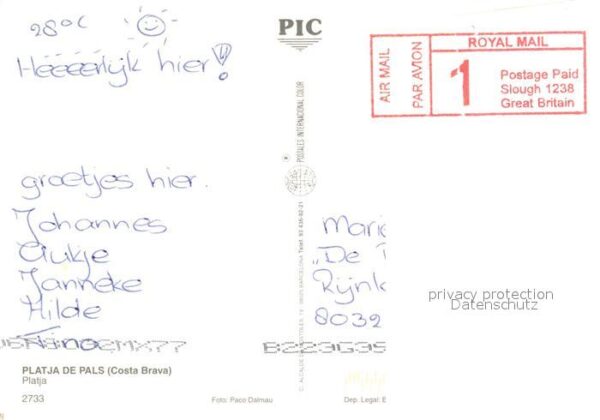 28°C
Heeeerlijk hier!
groetjes hier.
Johannes
Aukje
Janneke
Hilde
Nina
PLATJA DE PALS (Costa Brava)
Platja
2733
PIC
POSTALES INTERNACIONAL COLOR
Foto: Paco Dalmau
Dep. Legal: B
AIR MAIL
PAR AVION
ROYAL MAIL
1
Postage Paid
Slough 1238
Great Britain
Marie
"De
Rijnk
8032
privacy protection
Datenschutz